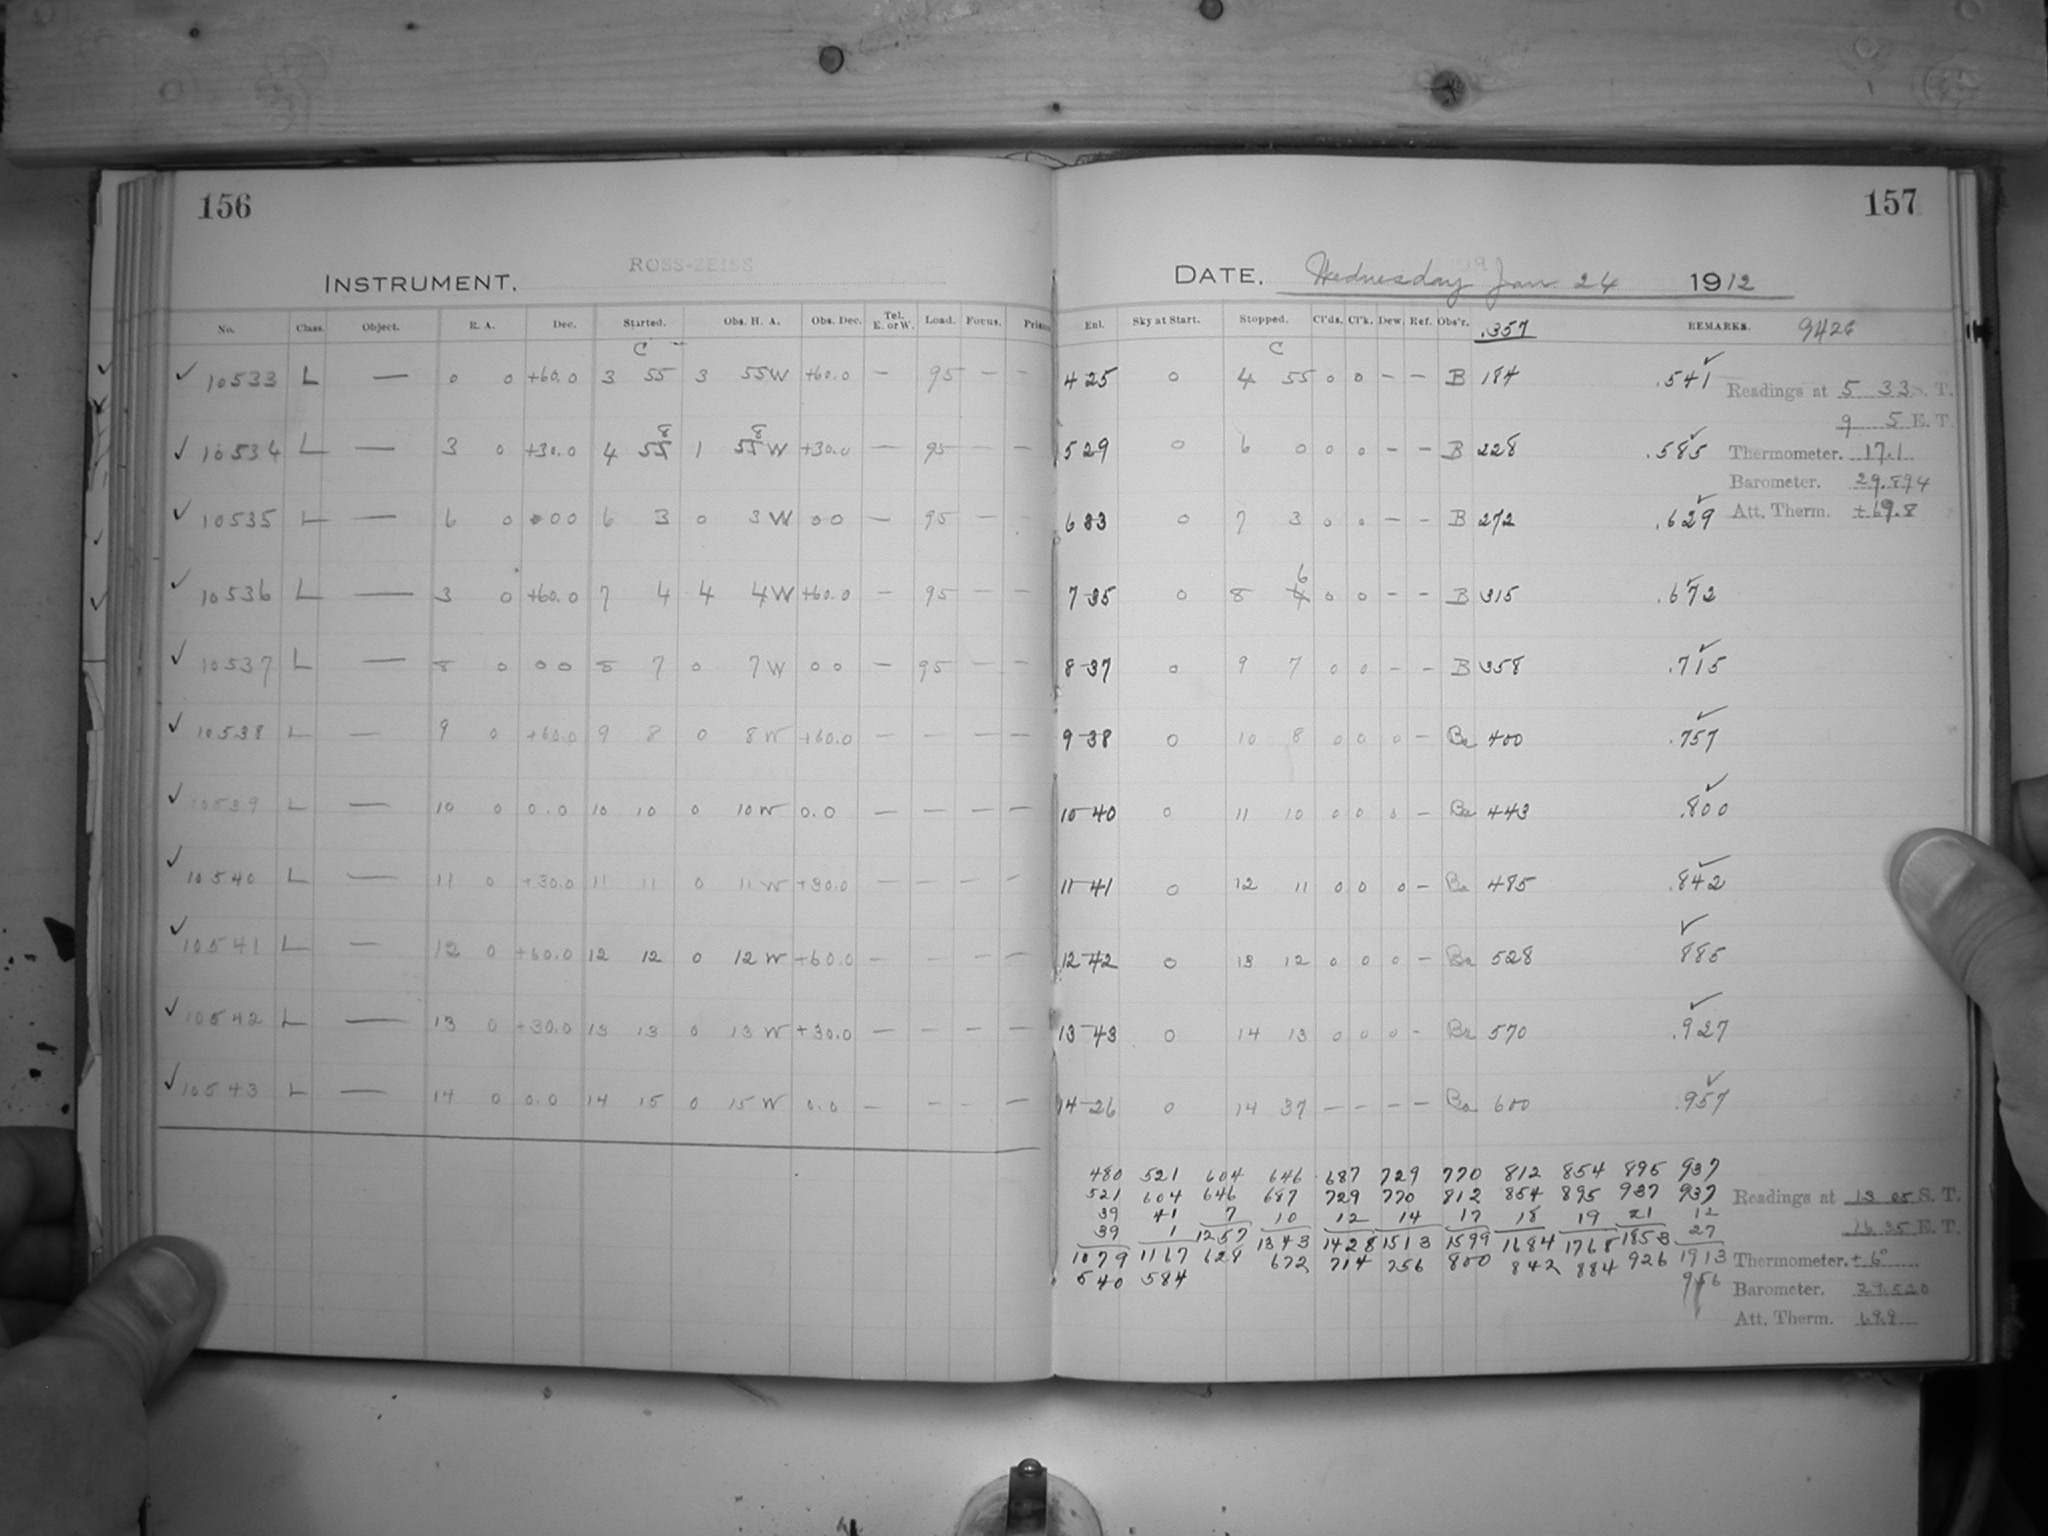 156
ROSS-ZEISS
INSTRUMENT.
No. Class. Object. R. A. Dec. Started. Obs. H. A. Obs. Dec. Tel. E. or W. Load. Focus.
C
10533 L — 0 0 +60.0 3 55 3 55W +60.0 — 95 — —
8 8
10534 L — 3 0 +30.0 4 55 1 55W +30.0 — 95 — —
10535 L — 6 0 00 6 3 0 3W 00 — 95 — —
10536 L — 3 0 +60.0 7 4 4 4W +60.0 — 95 — —
10537 L — 8 0 00 8 7 0 7W 00 — 95 — —
10538 L — 9 0 +60.0 9 8 0 8W +60.0 — — — —
10539 L — 10 0 0.0 10 10 0 10W 0.0 — — — —
10540 L — 11 0 +30.0 11 11 0 11W +30.0 — — — —
10541 L — 12 0 +60.0 12 12 0 12W +60.0 — — — —
10542 L — 13 0 +30.0 13 13 0 13W +30.0 — — — —
10543 L — 14 0 0.0 14 15 0 15W 0.0 — — — —
157
DATE. Wednesday Jan 24 1912
Enl. Sky at Start. Stopped. Cl'ds. Cl'k. Dew. Ref. Obs'r. .357 REMARKS. 9426
C
4 25 0 4 55 0 0 — — B 184 .541
Readings at 5 33 S. T.
9 5 E. T.
5 29 0 6 0 0 0 0 — — B 228 .585
Thermometer. 17.1
Barometer. 29.894
6 33 0 7 3 0 0 — — B 272 .629
Att. Therm. +69.8
6
7 35 0 8 4 0 0 — — B 315 .672
8 37 0 9 7 0 0 — — B 358 .715
9 38 0 10 8 0 0 0 — Ba 400 .757
10 40 0 11 10 0 0 0 — Ba 443 .800
11 41 0 12 11 0 0 0 — Ba 485 .842
12 42 0 13 12 0 0 0 — Ba 528 885
13 43 0 14 13 0 0 0 — Ba 570 .927
14 26 0 14 37 — — — — Ba 600 .957
480 521 604 646 687 729 770 812 854 895 937
521 604 646 687 729 770 812 854 895 937 937
39 41 7 10 12 14 17 18 19 21 12
39 1 1257 1343 1428 1513 1599 1684 1768 1853 27
1079 1167 628 672 714 756 800 842 884 926 1913
540 584 956
Readings at 13 05 S. T.
16 35 E. T.
Thermometer. +6°
Barometer. 29.520
Att. Therm. 69.8